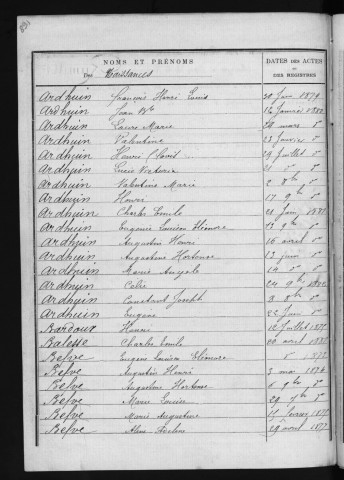 NOMS ET PRÉNOMS
Des Naissances
DATES DES ACTES
OU
DES REGISTRES
Ardhuin François Henri Louis 20 Juin
Ardhuin Jean Bte 12 Janvier
Ardhuin Laure Marie 24 mars dº
Ardhuin Valentine 23 Janvier dº
Ardhuin Henri Clovis 29 Juillet dº
Ardhuin Lucie Victoria
Ardhuin Valentine Marie 2 8bre dº
Ardhuin Henri 17 9bre dº
Ardhuin Charles Emile 21 Juin
Ardhuin Eugénie Louise Eléonore 13 9bre dº
Ardhuin Augustin Henri 16 avril dº
Ardhuin Augustine Hortense 13 Juin dº
Ardhuin Marie Angèle 14 dº dº
Ardhuin Célie 24 9bre
Ardhuin Constant Joseph 3 8bre dº
Ardhuin Eugène 22 Juin dº
Bardoux Henri 12 Juillet
Balesse Charles Emile 20 avril
Befve Eugène Louise Eléonore
Befve Augustin Henri 3 mai 1874
Befve Augustine Hortense 6 9bre dº
Befve Marie Louise 29 9bre dº
Befve Marie Augustine 15 février
Befve Aline 29 avril 1877